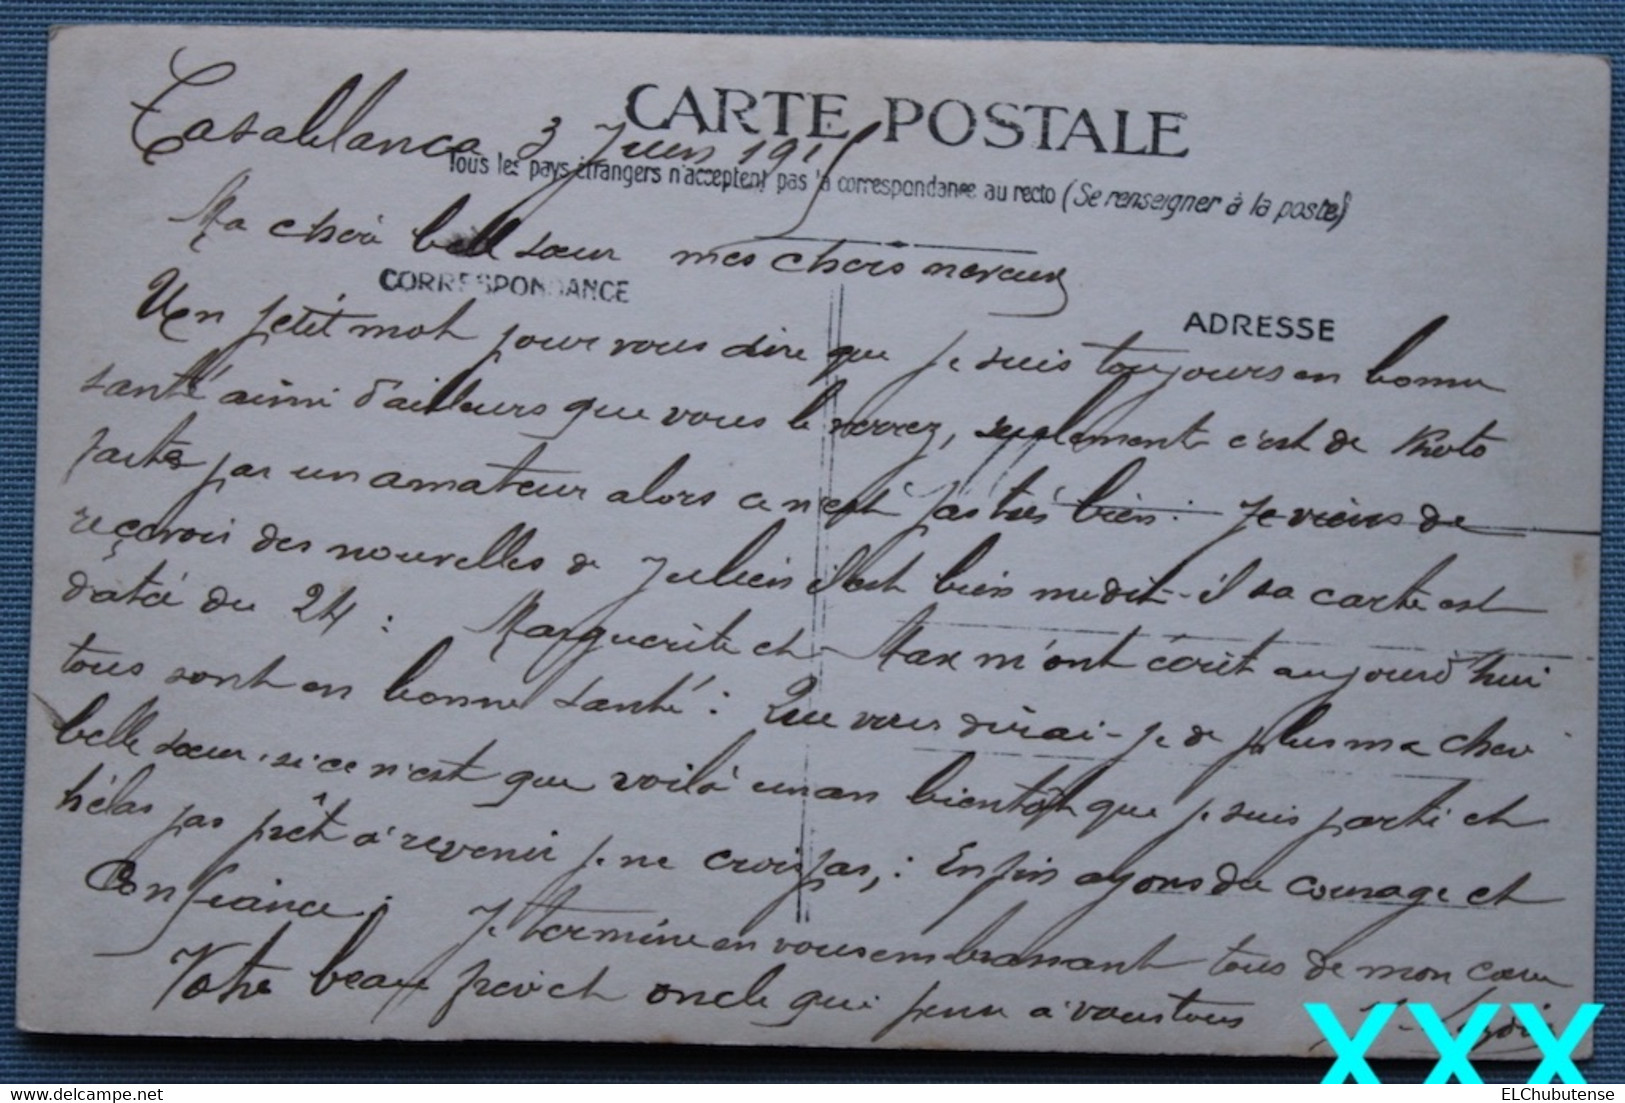 CARTE POSTALE
Casablanca 3 Juin 1915
Tous les pays étrangers n'acceptent pas la correspondance au recto (Se renseigner à la poste)
Ma chère belle sœur mes chers neveux
CORRESPONDANCE
ADRESSE
Un petit mot pour vous dire que je suis toujours en bonne
santé ainsi d'ailleurs que vous le verrez, seulement c'est de Photo
faites par un amateur alors ce n'est pas très bien : Je viens de
reçevoir des nouvelles de Julien il est bien me dit-il sa carte est
datée du 24 : Marguerite et Max m'ont écrit aujourd'hui
tous sont en bonne santé : Que vous dirai-je de plus ma chère
belle sœur, si ce n'est que voilà un an bientôt que je suis parti et
hélas pas prêt à revenir je ne crois pas, : Enfin ayons du courage et
Confiance ; Je termine en vous embrassant tous de mon cœur
Votre beau frère et oncle qui pense à vous tous
XXX
https://www.delcampe.net
ELChubutense